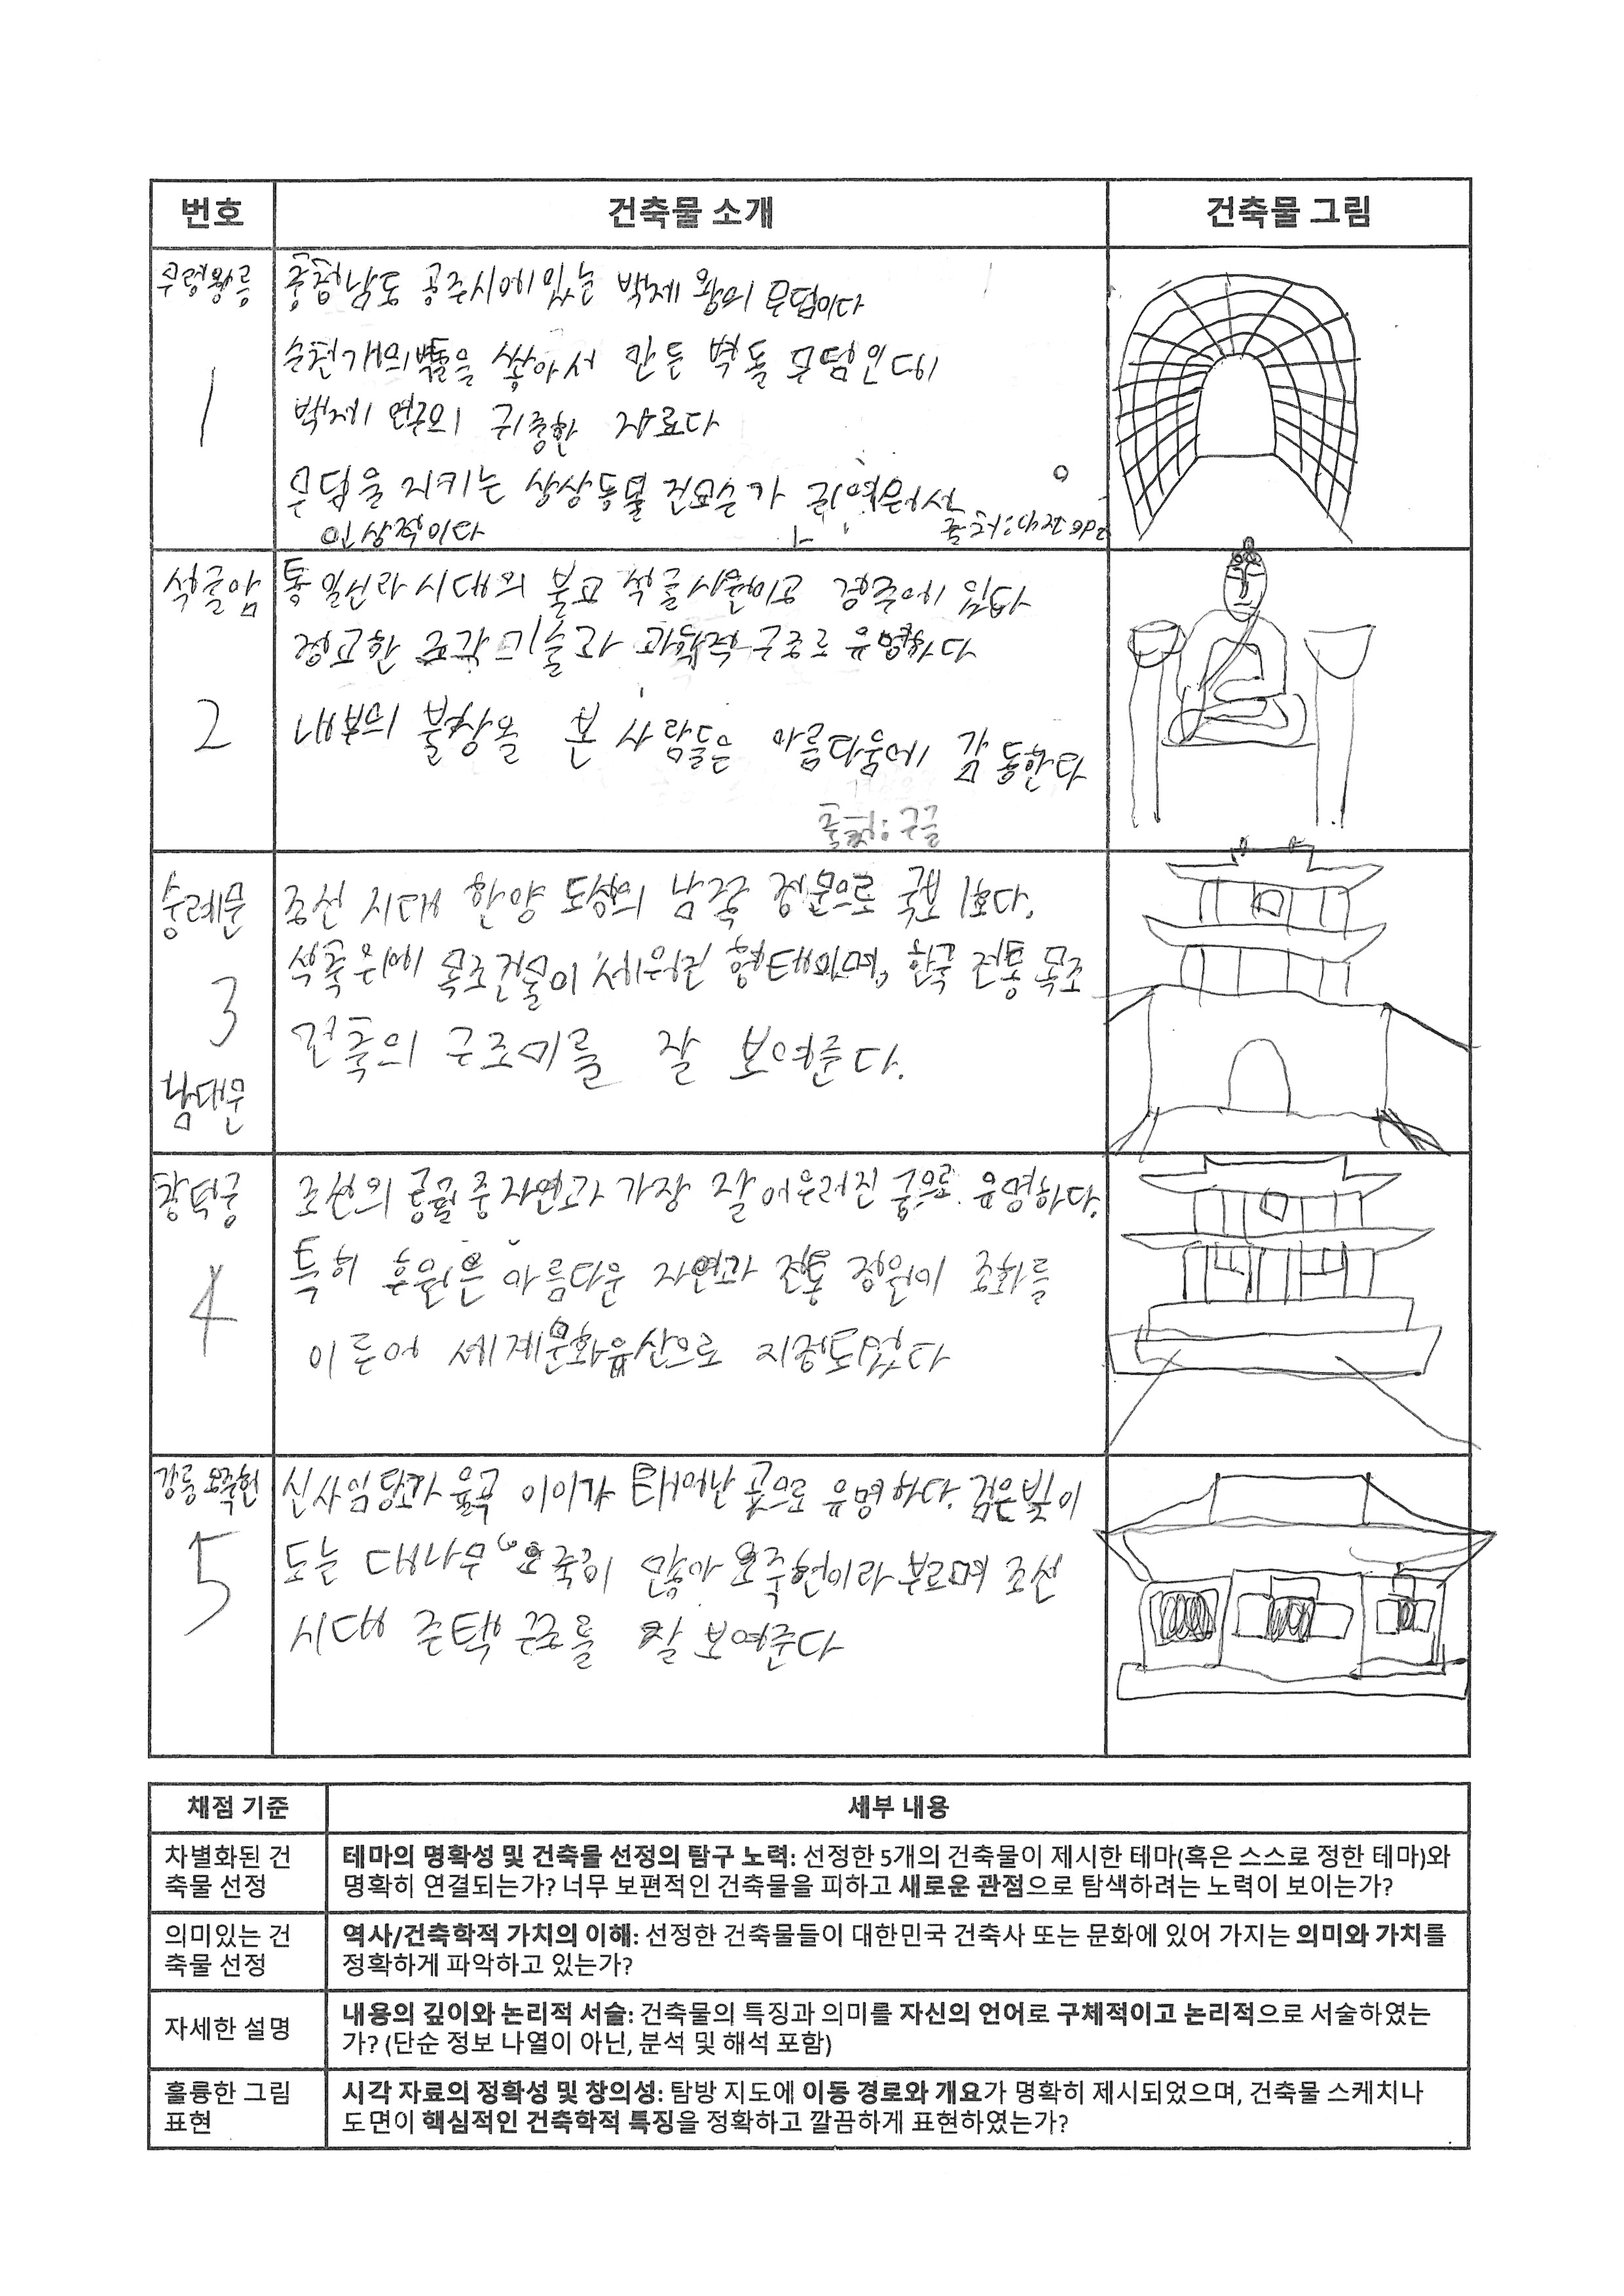 번호 건축물 소개 건축물 그림
무령왕릉
1
충청남도 공주시에있는 백제 왕의 무덤이다
수천개의벽돌을 쌓아서 만든 벽돌 무덤인데
백제 연구의 귀중한 자료다
무덤을 지키는 상상동물 진묘수가 귀여워서
인상적이다
출처:
석굴암
2
통일신라 시대의 불교 석굴사원이고 경주에 있다
정교한 조각 기술과 과학적구조로 유명하다
내부의 불상을 본 사람들은 아름다움에 감동한다
출처: 구글
숭례문
3
남대문
조선 시대 한양 도성의 남쪽 정문으로 국보 1호다.
석축위에 목조건물이 세워진 형태이며, 한국 전통 목조
건축의 구조미를 잘 보여준다.
창덕궁
4
조선의 궁궐 중 자연과 가장 잘 어우러진 궁으로 유명하다.
특히 후원은 아름다운 자연과 전통 정원이 조화를
이루어 세계문화유산으로 지정되었다
강릉 오죽헌
5
신사임당과 율곡 이이가 태어난 곳으로 유명하다. 검은빛이
도는 대나무 "오죽이 많아 오죽헌이라 부르며 조선
시대 주택 구조를 잘 보여준다
채점 기준 세부 내용
차별화된 건
축물 선정
테마의 명확성 및 건축물 선정의 탐구 노력: 선정한 5개의 건축물이 제시한 테마(혹은 스스로 정한 테마)와
명확히 연결되는가? 너무 보편적인 건축물을 피하고 새로운 관점으로 탐색하려는 노력이 보이는가?
의미있는 건
축물 선정
역사/건축학적 가치의 이해: 선정한 건축물들이 대한민국 건축사 또는 문화에 있어 가지는 의미와 가치를
정확하게 파악하고 있는가?
자세한 설명
내용의 깊이와 논리적 서술: 건축물의 특징과 의미를 자신의 언어로 구체적이고 논리적으로 서술하였는
가? (단순 정보 나열이 아닌, 분석 및 해석 포함)
훌륭한 그림
표현
시각 자료의 정확성 및 창의성: 탐방 지도에 이동 경로와 개요가 명확히 제시되었으며, 건축물 스케치나
도면이 핵심적인 건축학적 특징을 정확하고 깔끔하게 표현하였는가?